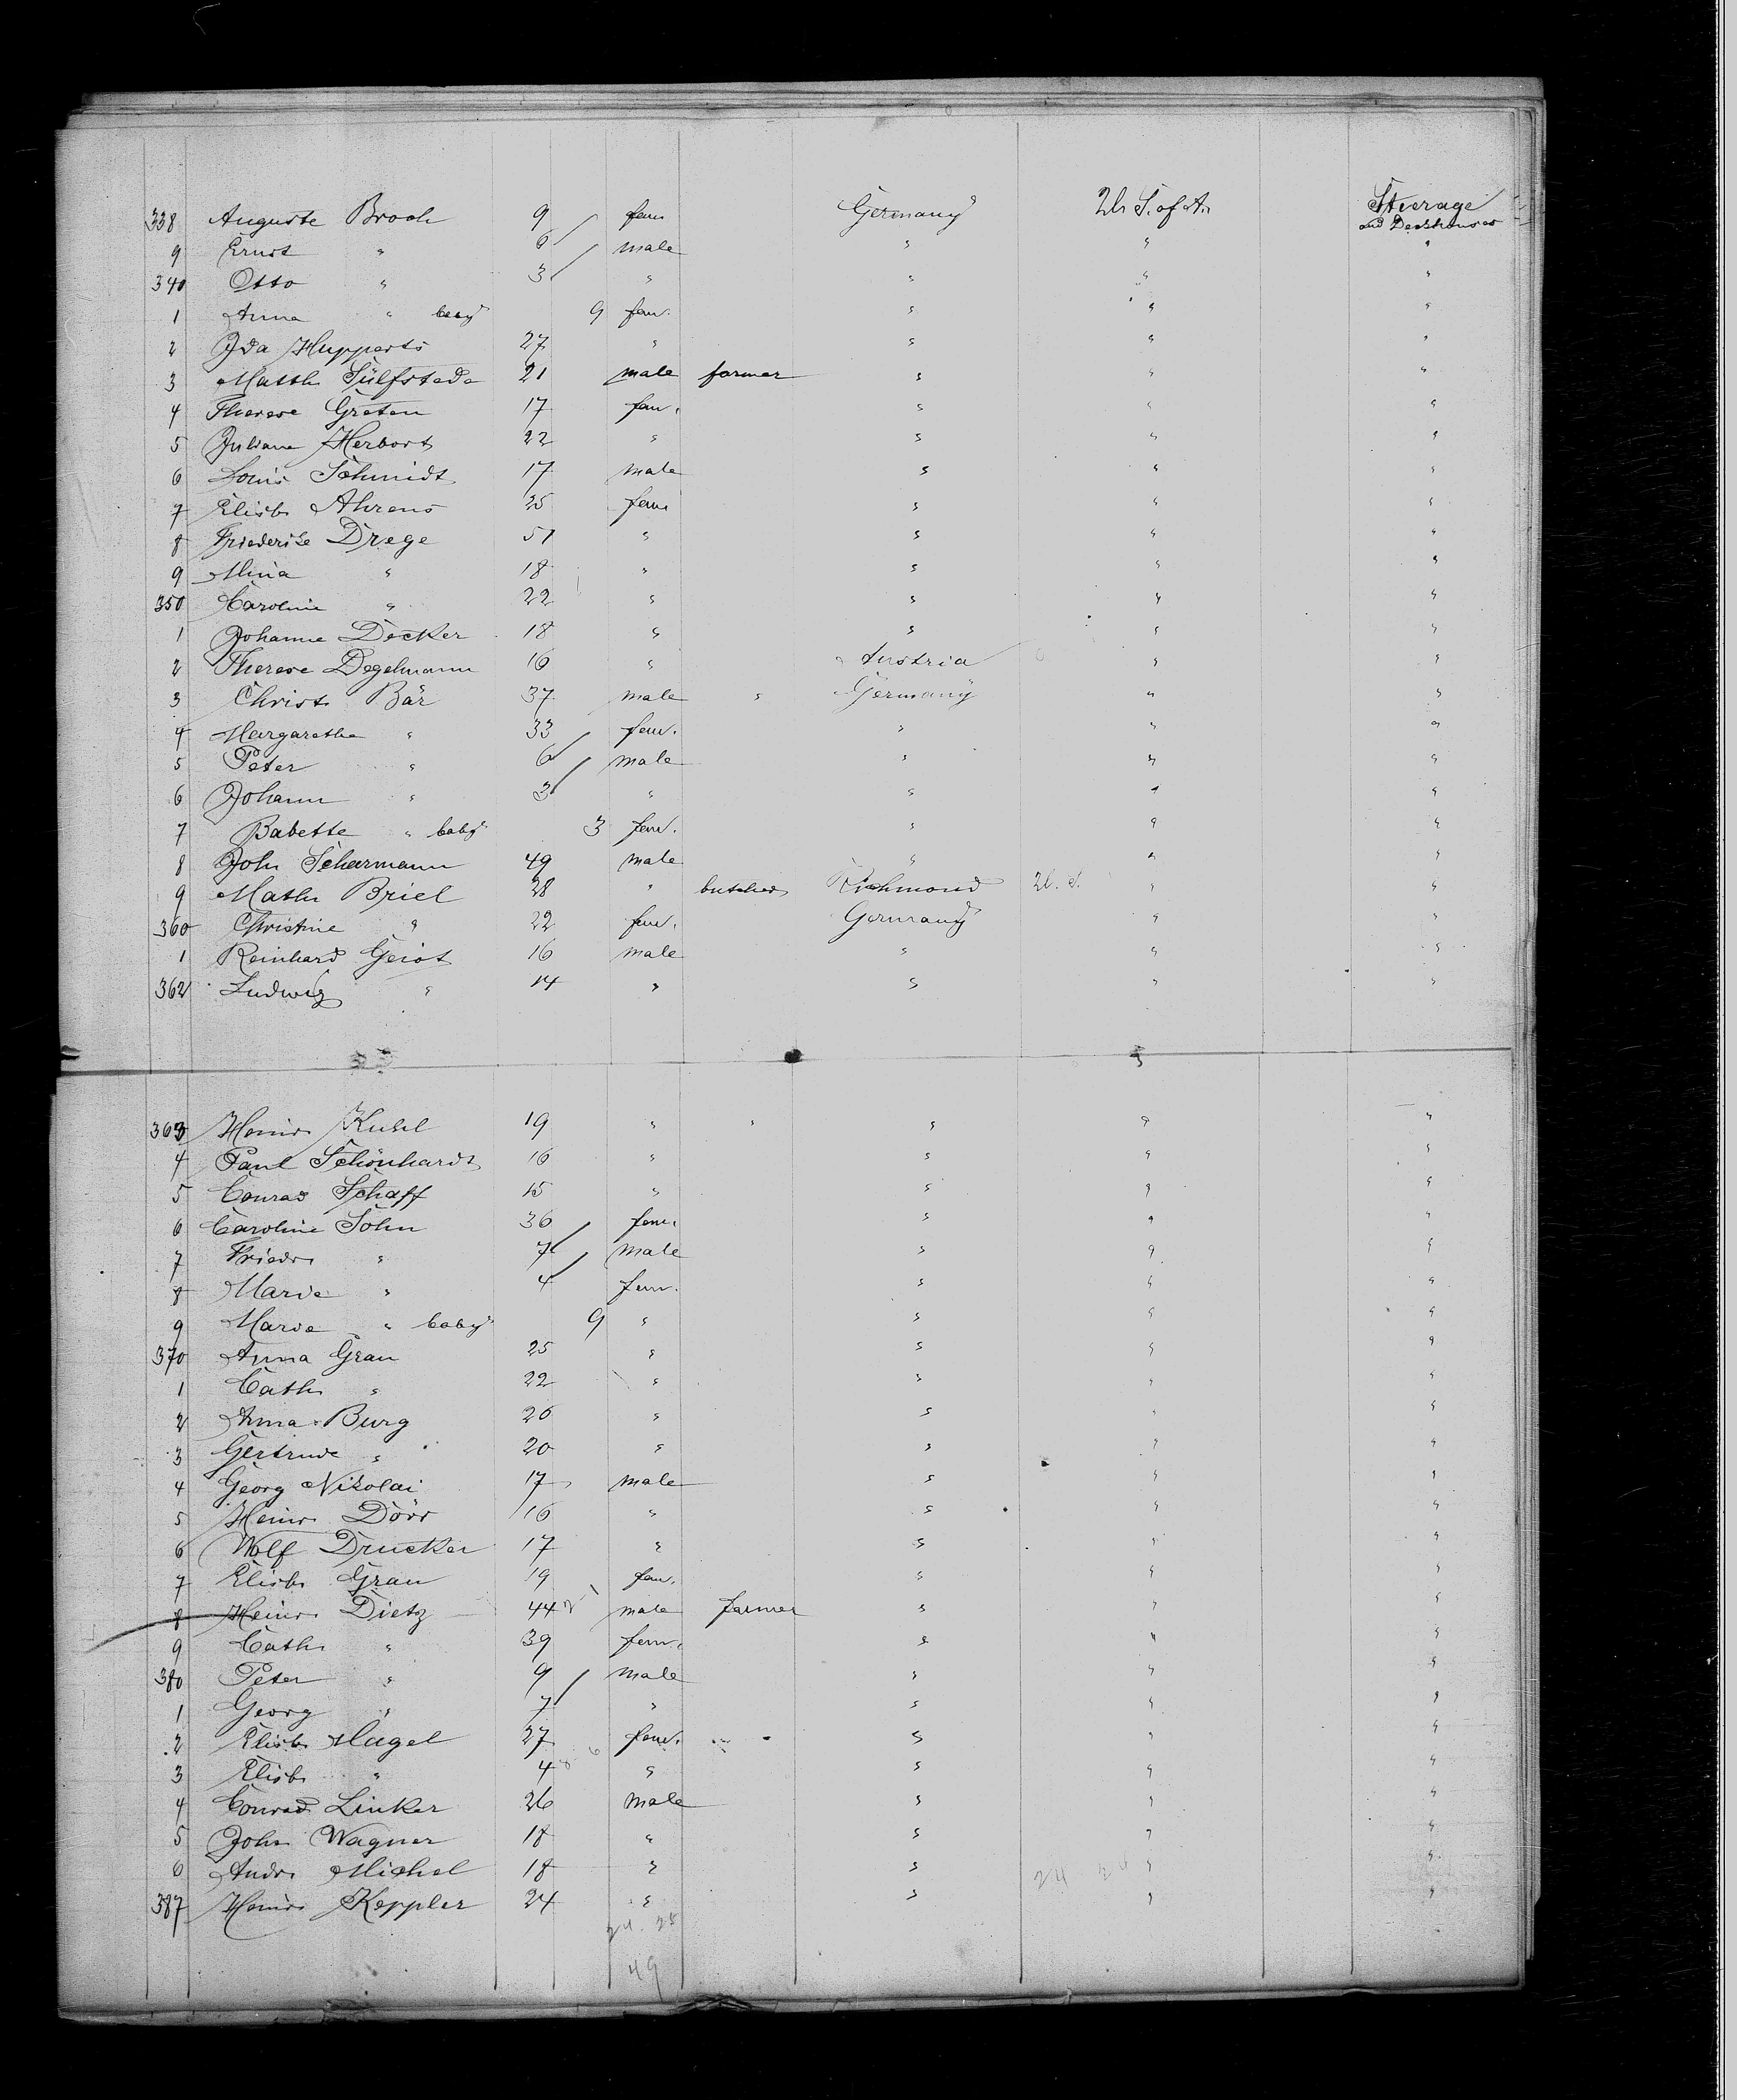 338 Auguste Broch 9 fem Germany U. S. of A. Steerage
and Deckhouses
9 Ernst " 6 male " " "
340 Otto " 3 " " " "
1 Anna " baby 9 fem. " " "
2 Ida Hupperts 27 " " " "
3 Matth Sülfstede 21 male farmer " " "
4 Therese Greten 17 fem. " " "
5 Juliane Herbort 22 " " " "
6 Louis Schmidt 17 male " " "
7 Elisb. Ahrens 25 fem " " "
8 Friederike Drege 51 " " " "
9 Mina " 18 " " " "
350 Caroline " 22 " " " "
1 Johanne Decker 18 " " " "
2 Therese Degelmann 16 " Austria " "
3 Christ. Bär 37 male " Germany " "
4 Margaretha " 33 fem. " " "
5 Peter " 6 male " " "
6 Johann " 3 " " " "
7 Babette " baby 3 fem. " " "
8 John Scharmann 49 male " " "
9 Math Briel 28 " butcher Richmond U. S. " "
360 Christine " 22 fem. Germany " "
1 Reinhard Geist 16 male " " "
362 Ludwig " 14 " " " "
363 Heinr. Kuhl 19 " " " " "
4 Paul Schönhardt 16 " " " "
5 Conrad Schaff 15 " " " "
6 Caroline Sohn 36 fem. " " "
7 Friedr. " 7 male " " "
8 Marie " 4 fem. " " "
9 Marie " baby 9 " " " "
370 Anna Grau 25 " " " "
1 Cath. " 22 " " " "
2 Anna Burg 26 " " " "
3 Gertrude " 20 " " " "
4 Georg Nikolai 17 male " " "
5 Heinr. Dörr 16 " " " "
6 Wolf Drucker 17 " " " "
7 Elisb. Grau 19 fem. " " "
8 Heinr. Dietz 44 male farmer " " "
9 Cath. " 39 fem. " " "
380 Peter " 9 male " " "
1 Georg " 7 " " " "
2 Elisb. Hugel 27 fem. " " "
3 Elisb. " 4 " " " "
4 Conrad Linker 26 male " " "
5 John Wagner 18 " " " "
6 Andr. Michel 18 " " 24 "  "
387 Heinr. Keppler 24 " " " "
24. 25
49